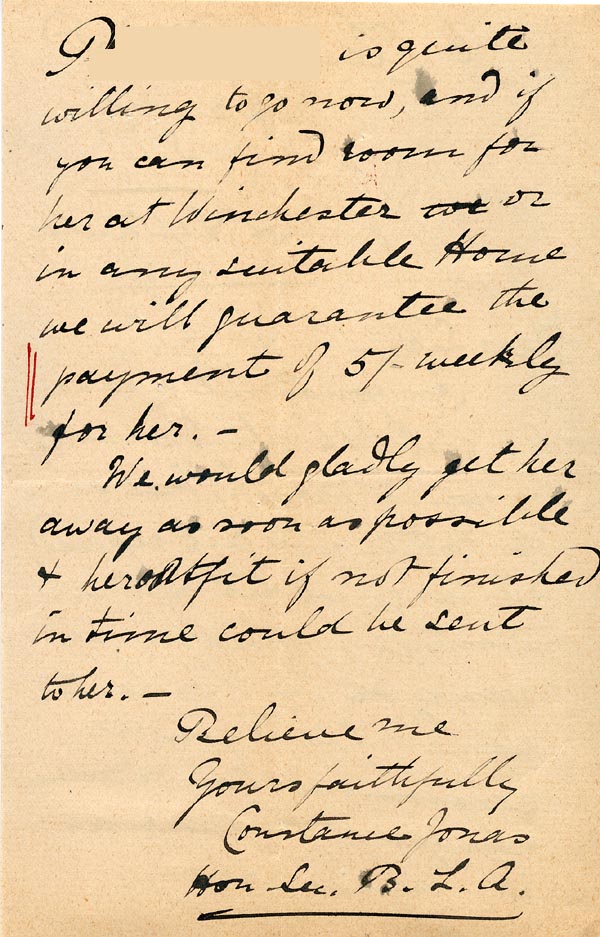 P is quite
willing to go now, and if
you can find room for
her at Winchester or
in any suitable Home
we will guarantee the
payment of 5/- weekly
for her. -
We would gladly get her
away as soon as possible
& her outfit if not finished
in time could be sent
to her. -
Believe me
Yours faithfully
Constance Jonas
Hon Sec. B. L. A.